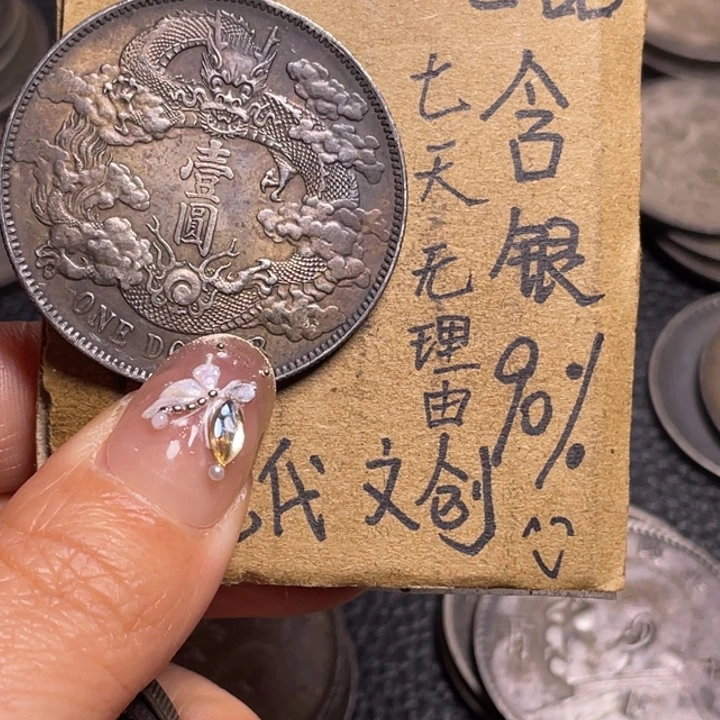 壹圓
ONE DO
含银90%
七天无理由
代文创